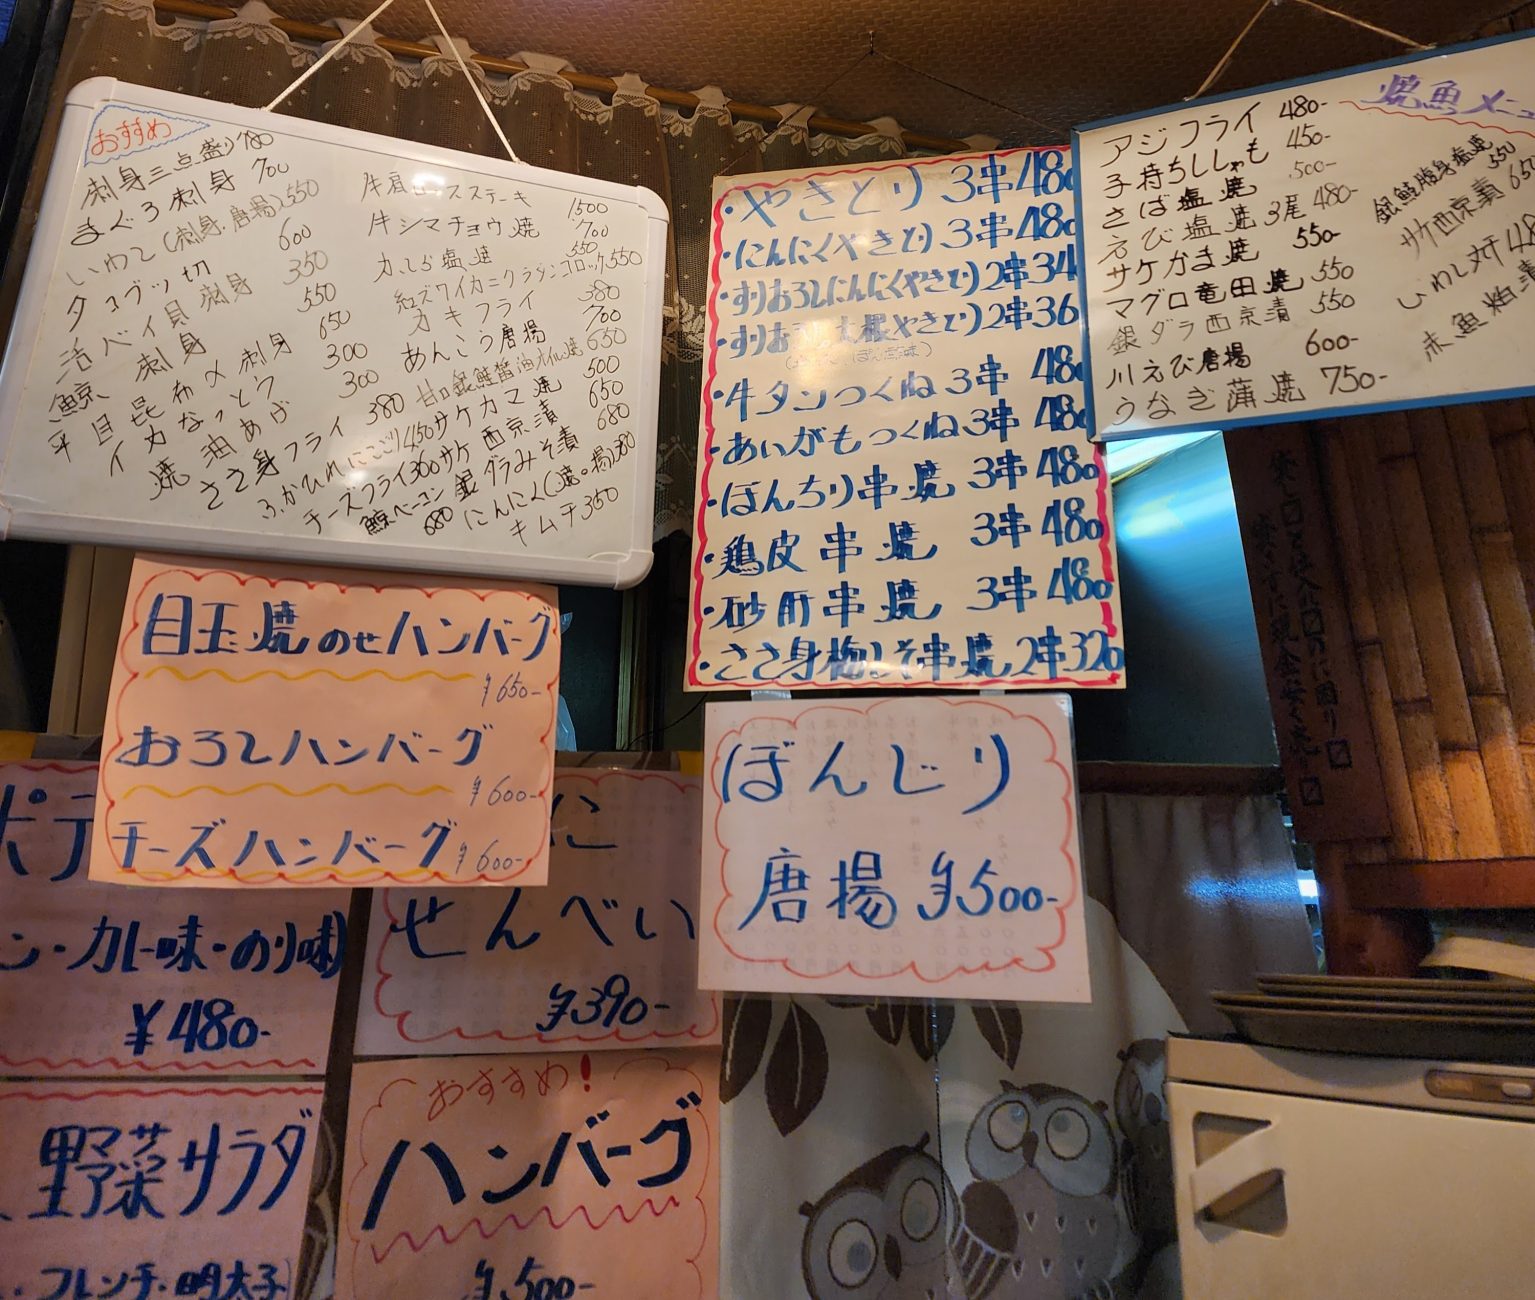 おすすめ
刺身三点盛り
まぐろ刺身 700
いわし(刺身.唐揚)550
タコブツ切 600
活バイ貝刺身 350
鯨 刺身 550
平目昆布〆刺身 650
イカなっとう 300
焼油あげ 300
ささ身フライ 380
ふかひれにこごり450
チーズフライ300
鯨ベーコン 680
牛肩ロースステーキ 1500
牛シマチョウ焼 700
かぶら塩焼 550
紅ズワイカニクラタンコロッケ550
カキフライ 580
あんこう唐揚 700
甘口銀鮭醤油オイル焼 650
サケカマ焼 500
サケ西京漬 650
銀ダラみそ漬 680
にんにく(焼.揚)380
キムチ350
・やきとり 3串480
・にんにくやきとり 3串480
・すりおろしにんにくやきとり2串34
・すりおろし大根やきとり2串36
・牛タンつくね3串 480
・あいがもつくね3串 480
・ぼんちり串焼 3串480
・鶏皮串焼 3串480
・砂肝串焼 3串480
・ささ身梅しそ串焼2串320
焼魚メニュ
アジフライ 480-
子持ちししゃも 450-
さば塩焼 500-
えび塩焼3尾 480-
サケかま焼 550-
マグロ竜田焼 550
銀ダラ西京漬 550
川えび唐揚 600-
うなぎ蒲焼 750-
銀鮭腹身塩焼 550
サケ西京漬 650
いわし丸干 48
赤魚粕漬
目玉焼のせハンバーグ
¥650-
おろしハンバーグ
¥600-
チーズハンバーグ ¥600-
ぼんじり
唐揚 ¥500-
ポテ
ン・カレー味・のり味)
¥480-
に
せんべい
¥390-
野菜サラダ
フレンチ・明太子)
おすすめ!
ハンバーグ
¥500-